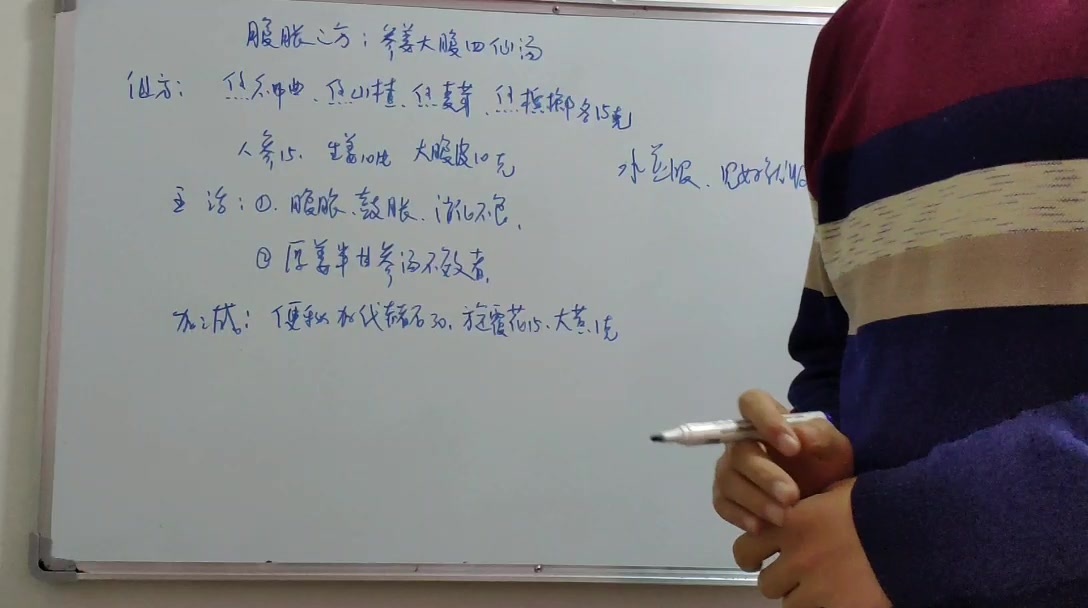 腹胀之方：参姜大腹四仙汤
仙方：焦神曲、焦山楂、焦麦芽、焦槟榔各15克
人参15、生姜10片 大腹皮10克
水煎服、
主治：①、腹胀、鼓胀、消化不良、
② 厚姜半甘参汤不效者、
加减：便秘加代赭石30、旋覆花15、大黄1克